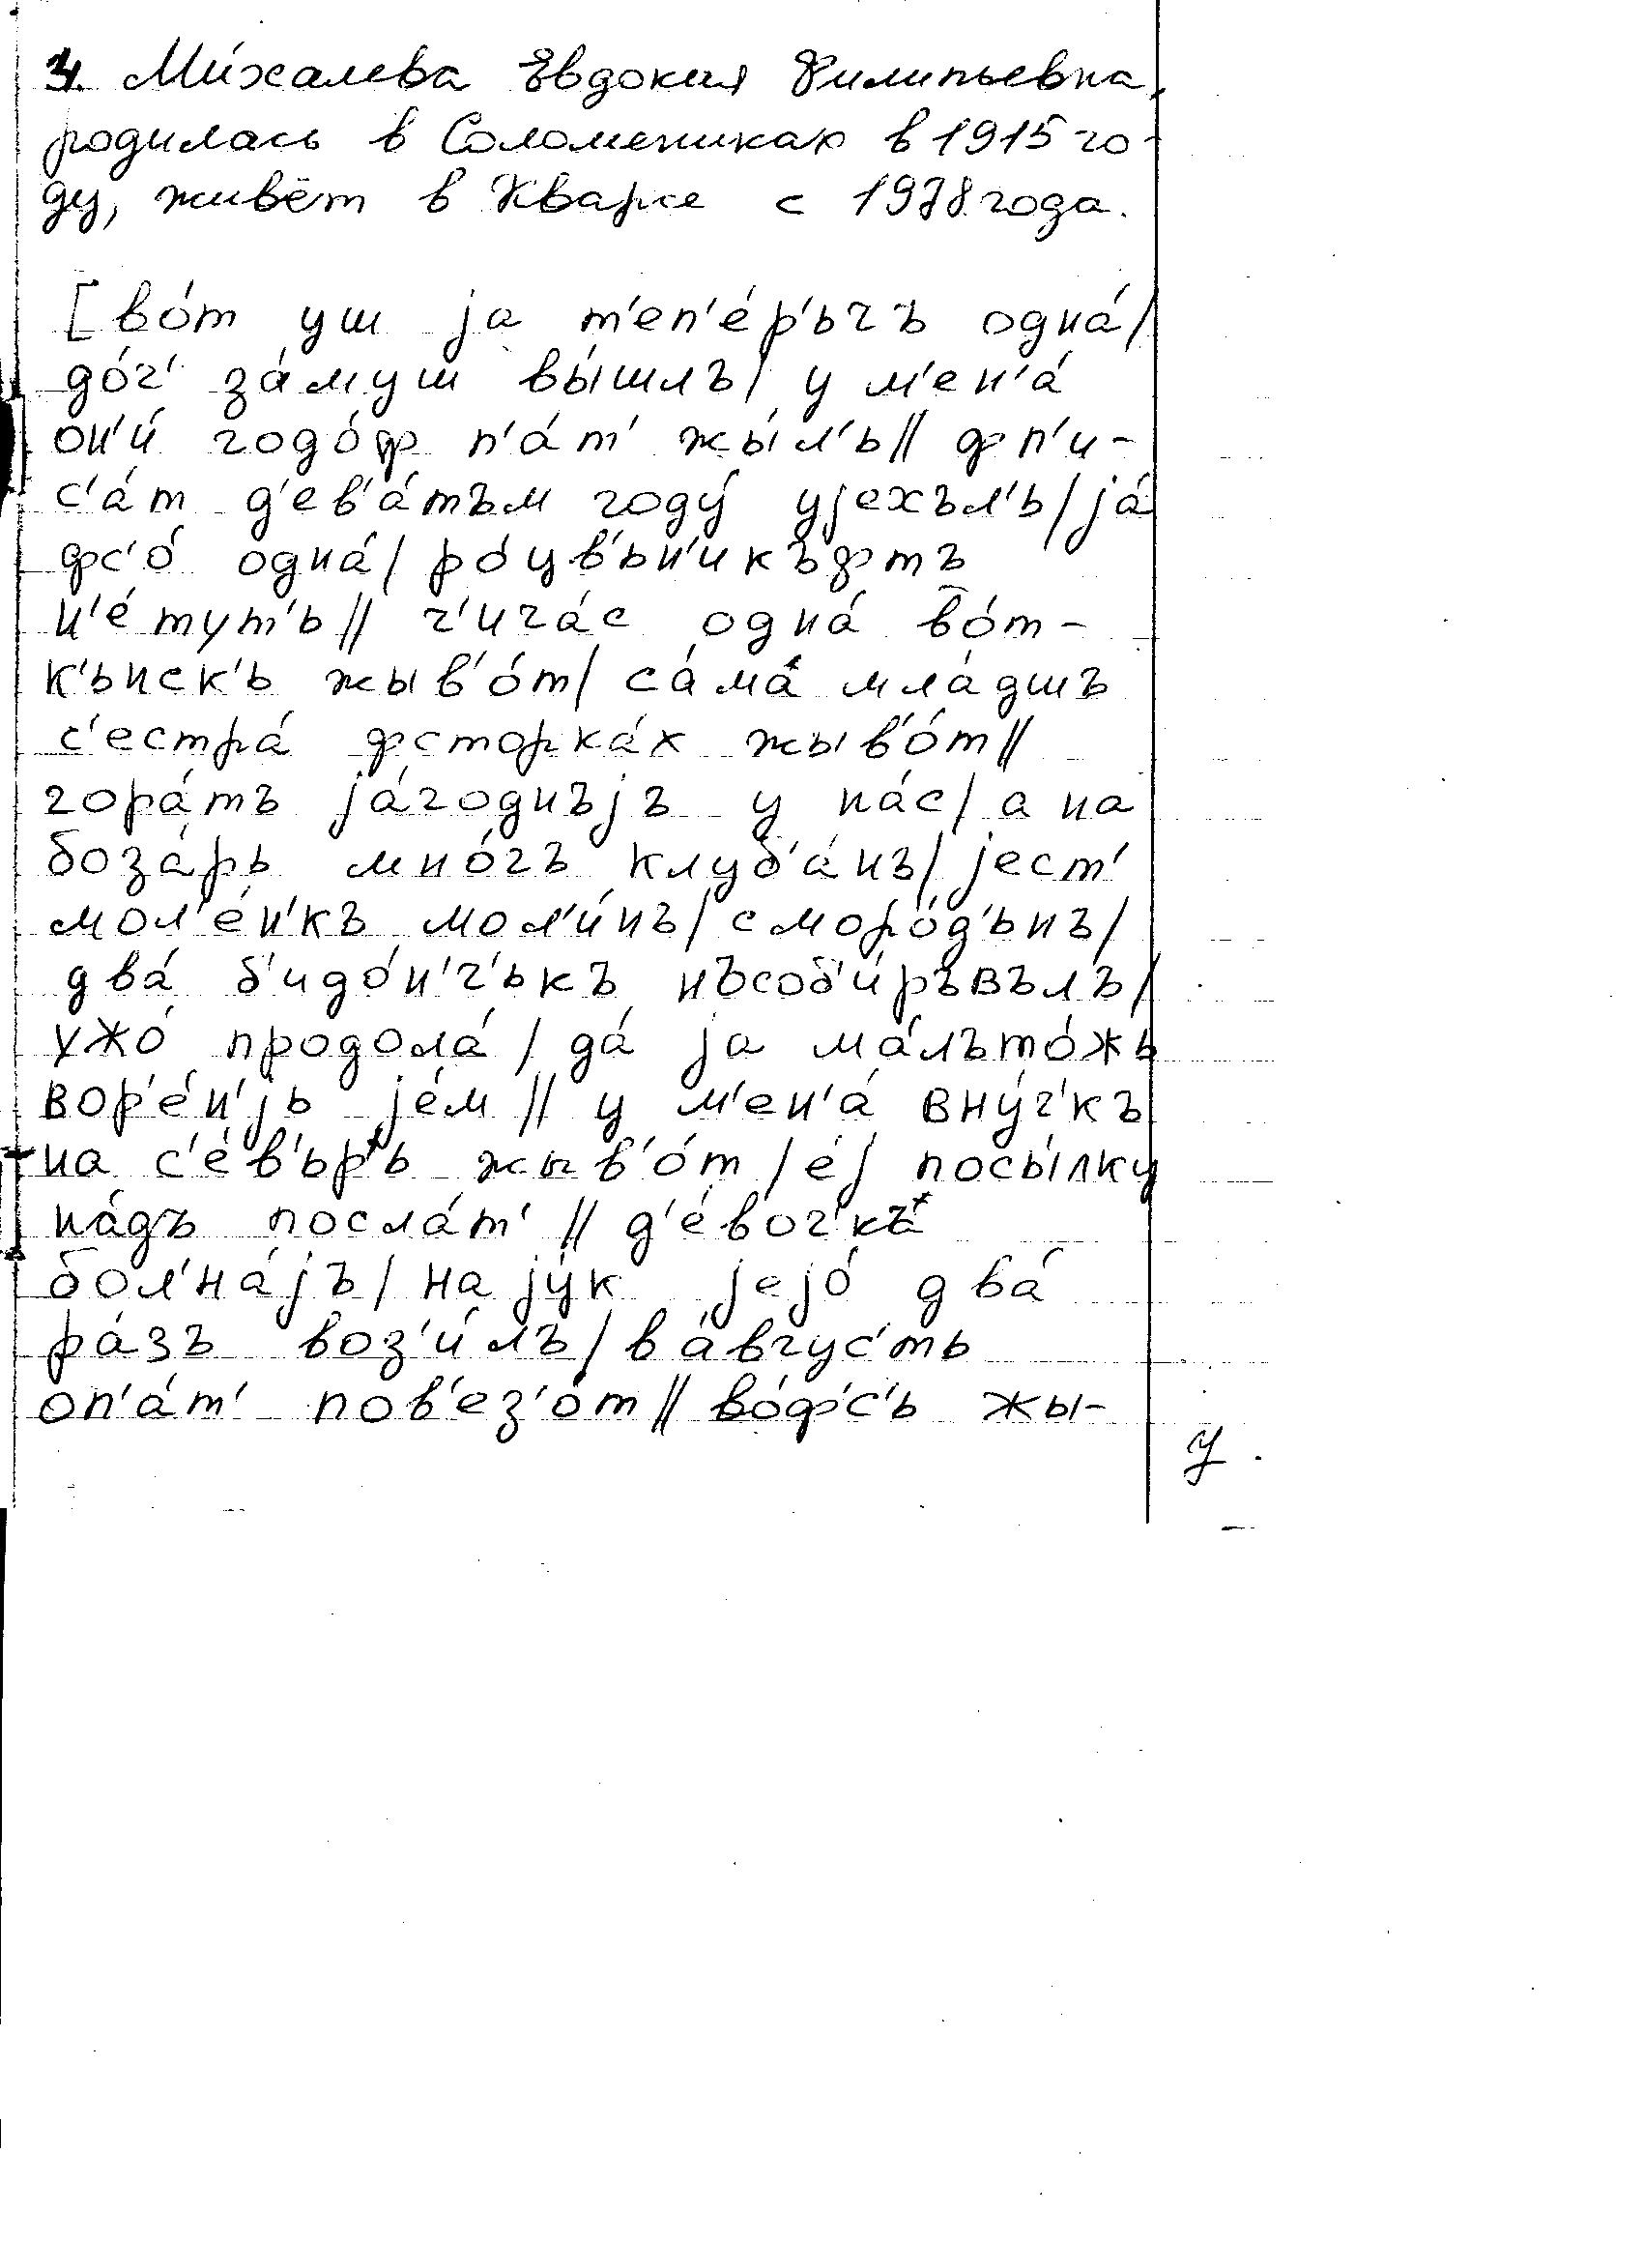 3. Ми́халева Евдокия Филипьевна,
родилась в Соломенниках в 1915 го-
ду, живёт в Кварсе с 1978 года.
[во́т уш ја т'еп'е́р'ьчъ одна́/
до́ч' за́муш вы́шлъ/ у м'ен'а́
он'и́ годо́ф п'а́т' жы́л'ь// фп'и-
с'а́т д'ев'а́тъм году́ уjехъл'ь/jа́
фс'о́ одна́/ ро́цв'ьн'икъфтъ
н'е́тут'ь// ч'ича́с одна́ во́т-
к'ьнск'ь жыв'о́т/ са́ма младшъ
с'естра́ фсторка́х жыв'о́т//
гора́тъ jа́годнъjъ у на́с/ а на
боза́рь мно́гъ клуб'а́нъ/ jест'
мол'е́н'къ мол'и́нъ/ сморо́д'ьнъ/
два́ б'идо́н'ч'ькъ нъсоб'и́ръвълъ/
ужо́ продола́ / да́ jа ма́лъто́жь
вор'е́н'jь jе́м // у м'ен'а́ вну́ч'къ
на с'е́в'ьр'ь жыв'о́т /е́j посы́лку
на́дъ посла́т' // д'е́воч'къ
бол'на́jъ/ на jу́к jеjо́ два́
ра́зъ воз'и́лъ/ в а́вгус'ть
оп'а́т' пов'ез'о́т// во́ф'с'ь жы-